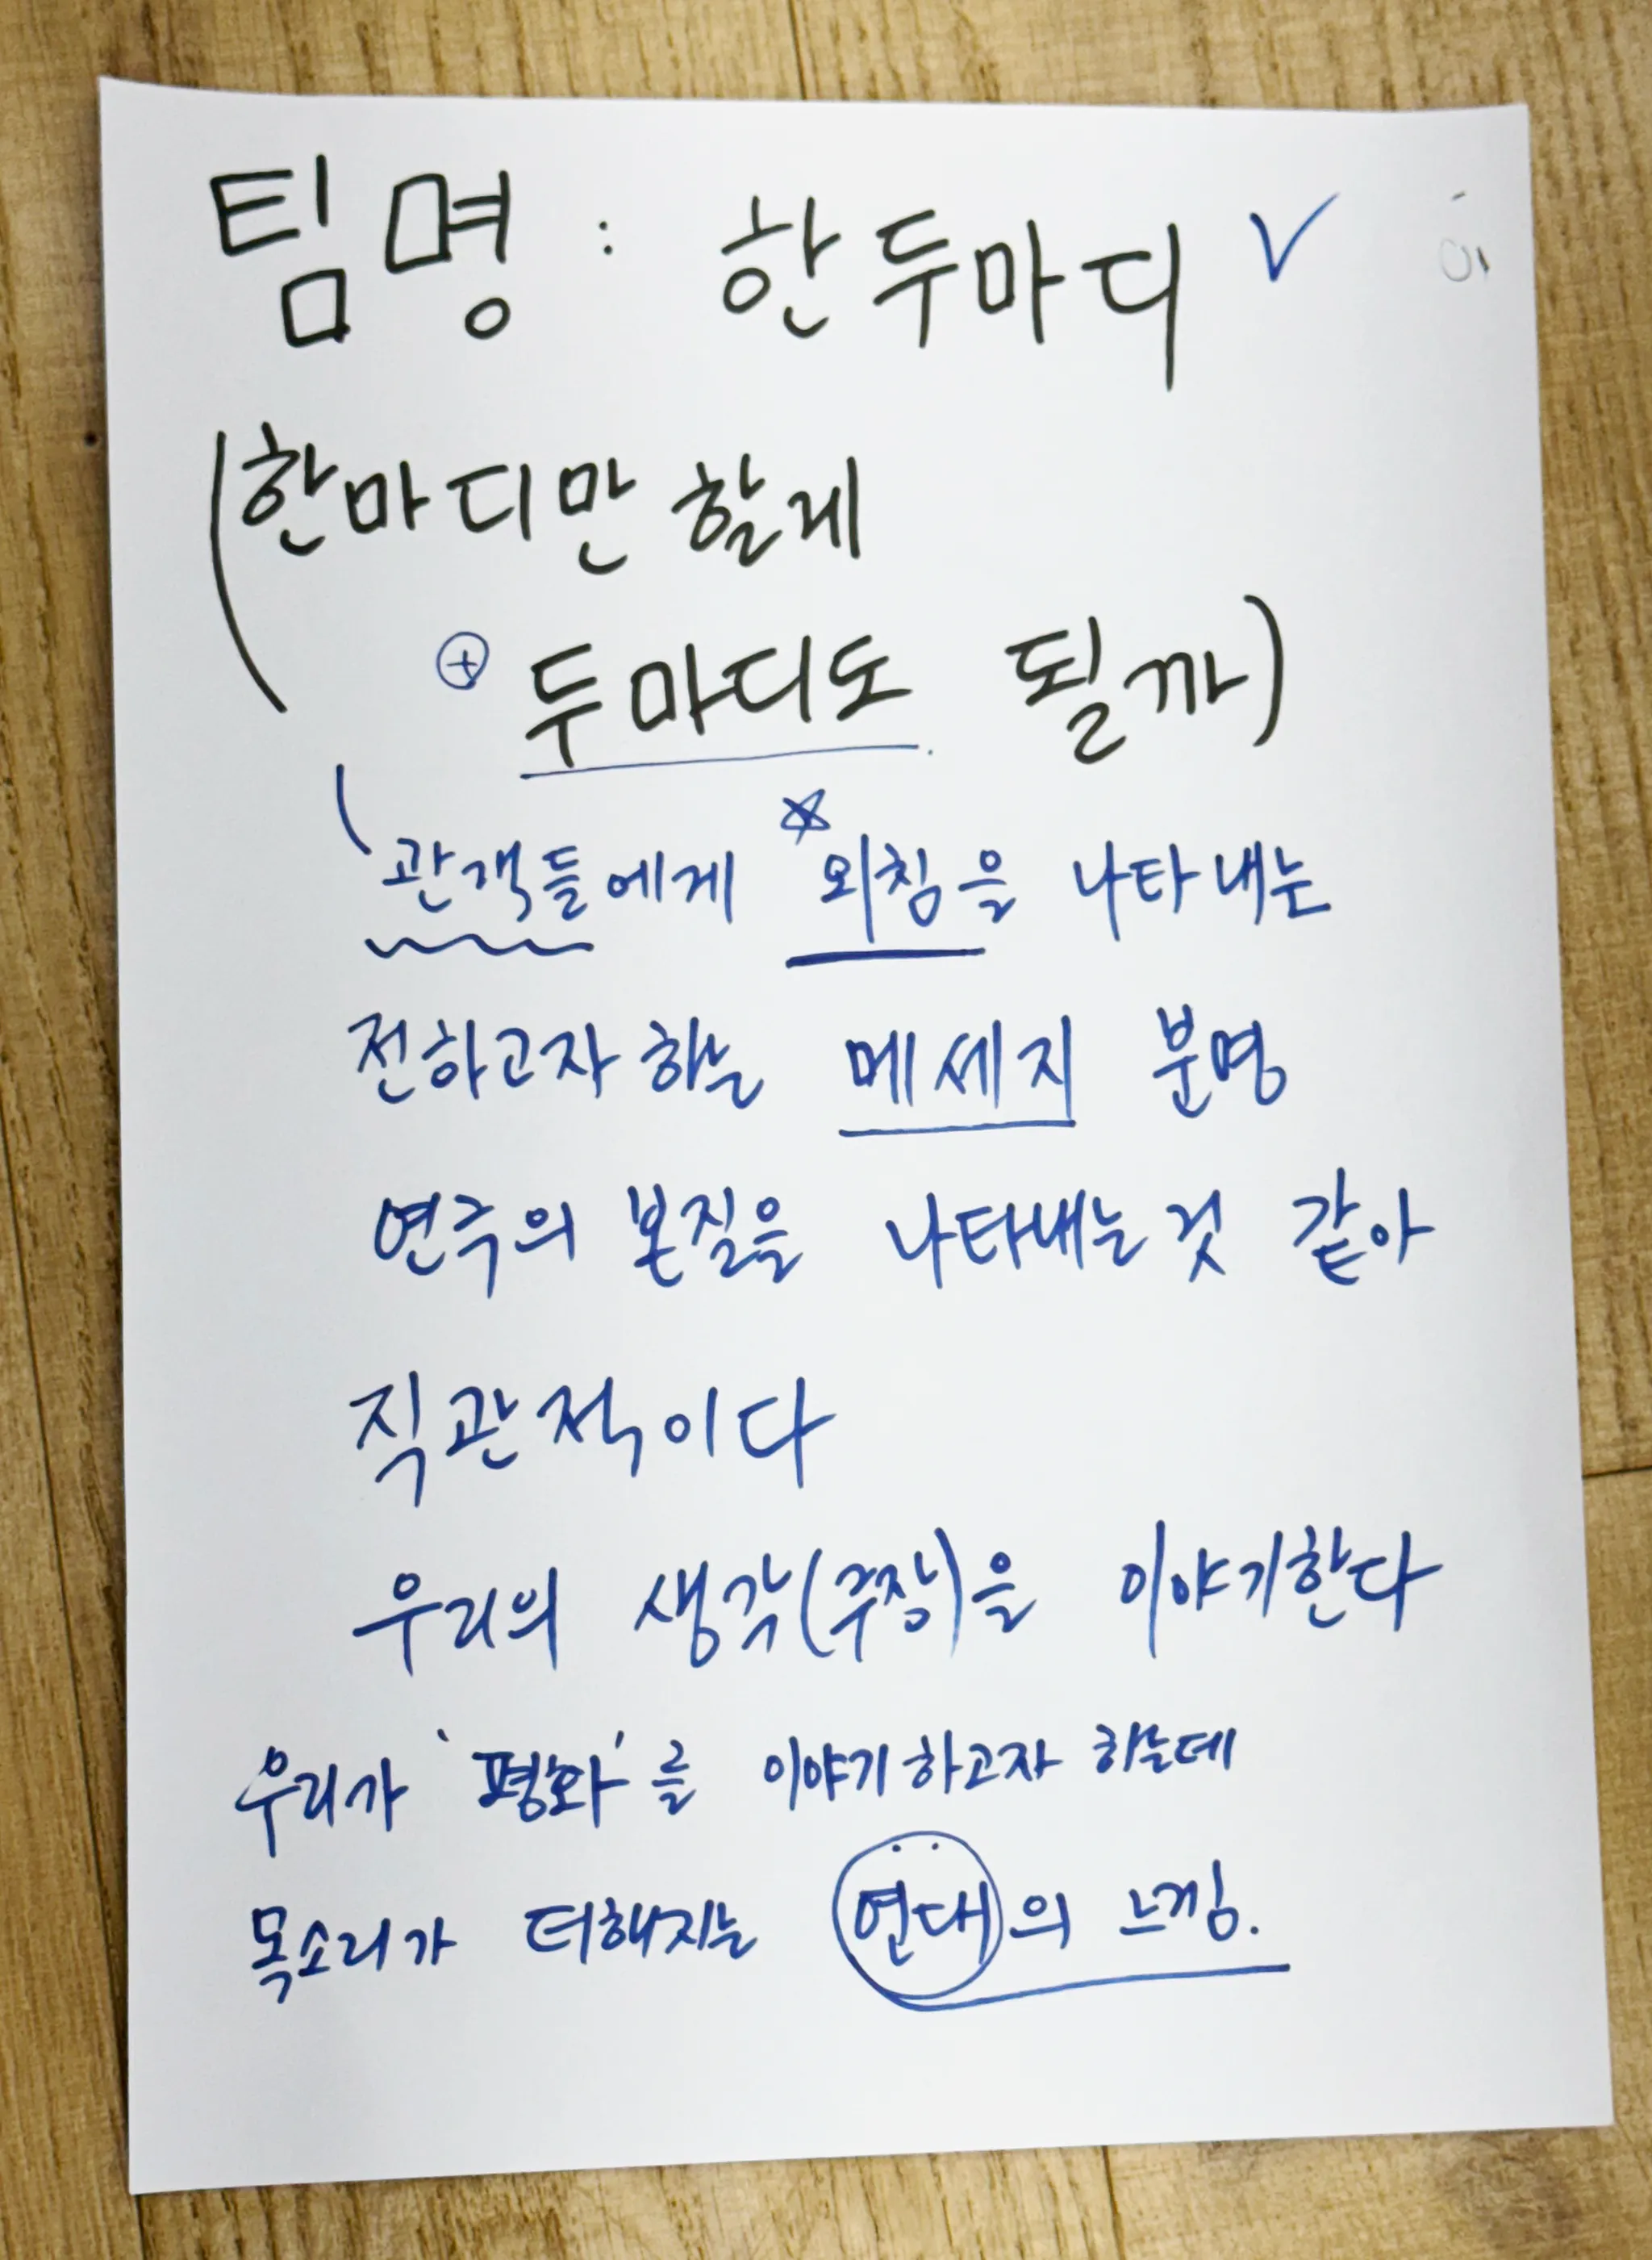 팀명 : 한두마디 ✓
(한마디만 할게
⊕ 두마디도 될까)
관객들에게 ☆외침을 나타내는
전하고자 하는 메세지 분명
연극의 본질을 나타내는것 같아
직관적이다
우리의 생각(주장)을 이야기한다
우리가 '평화'를 이야기하고자 하는데
목소리가 더해지는 연대의 느낌.